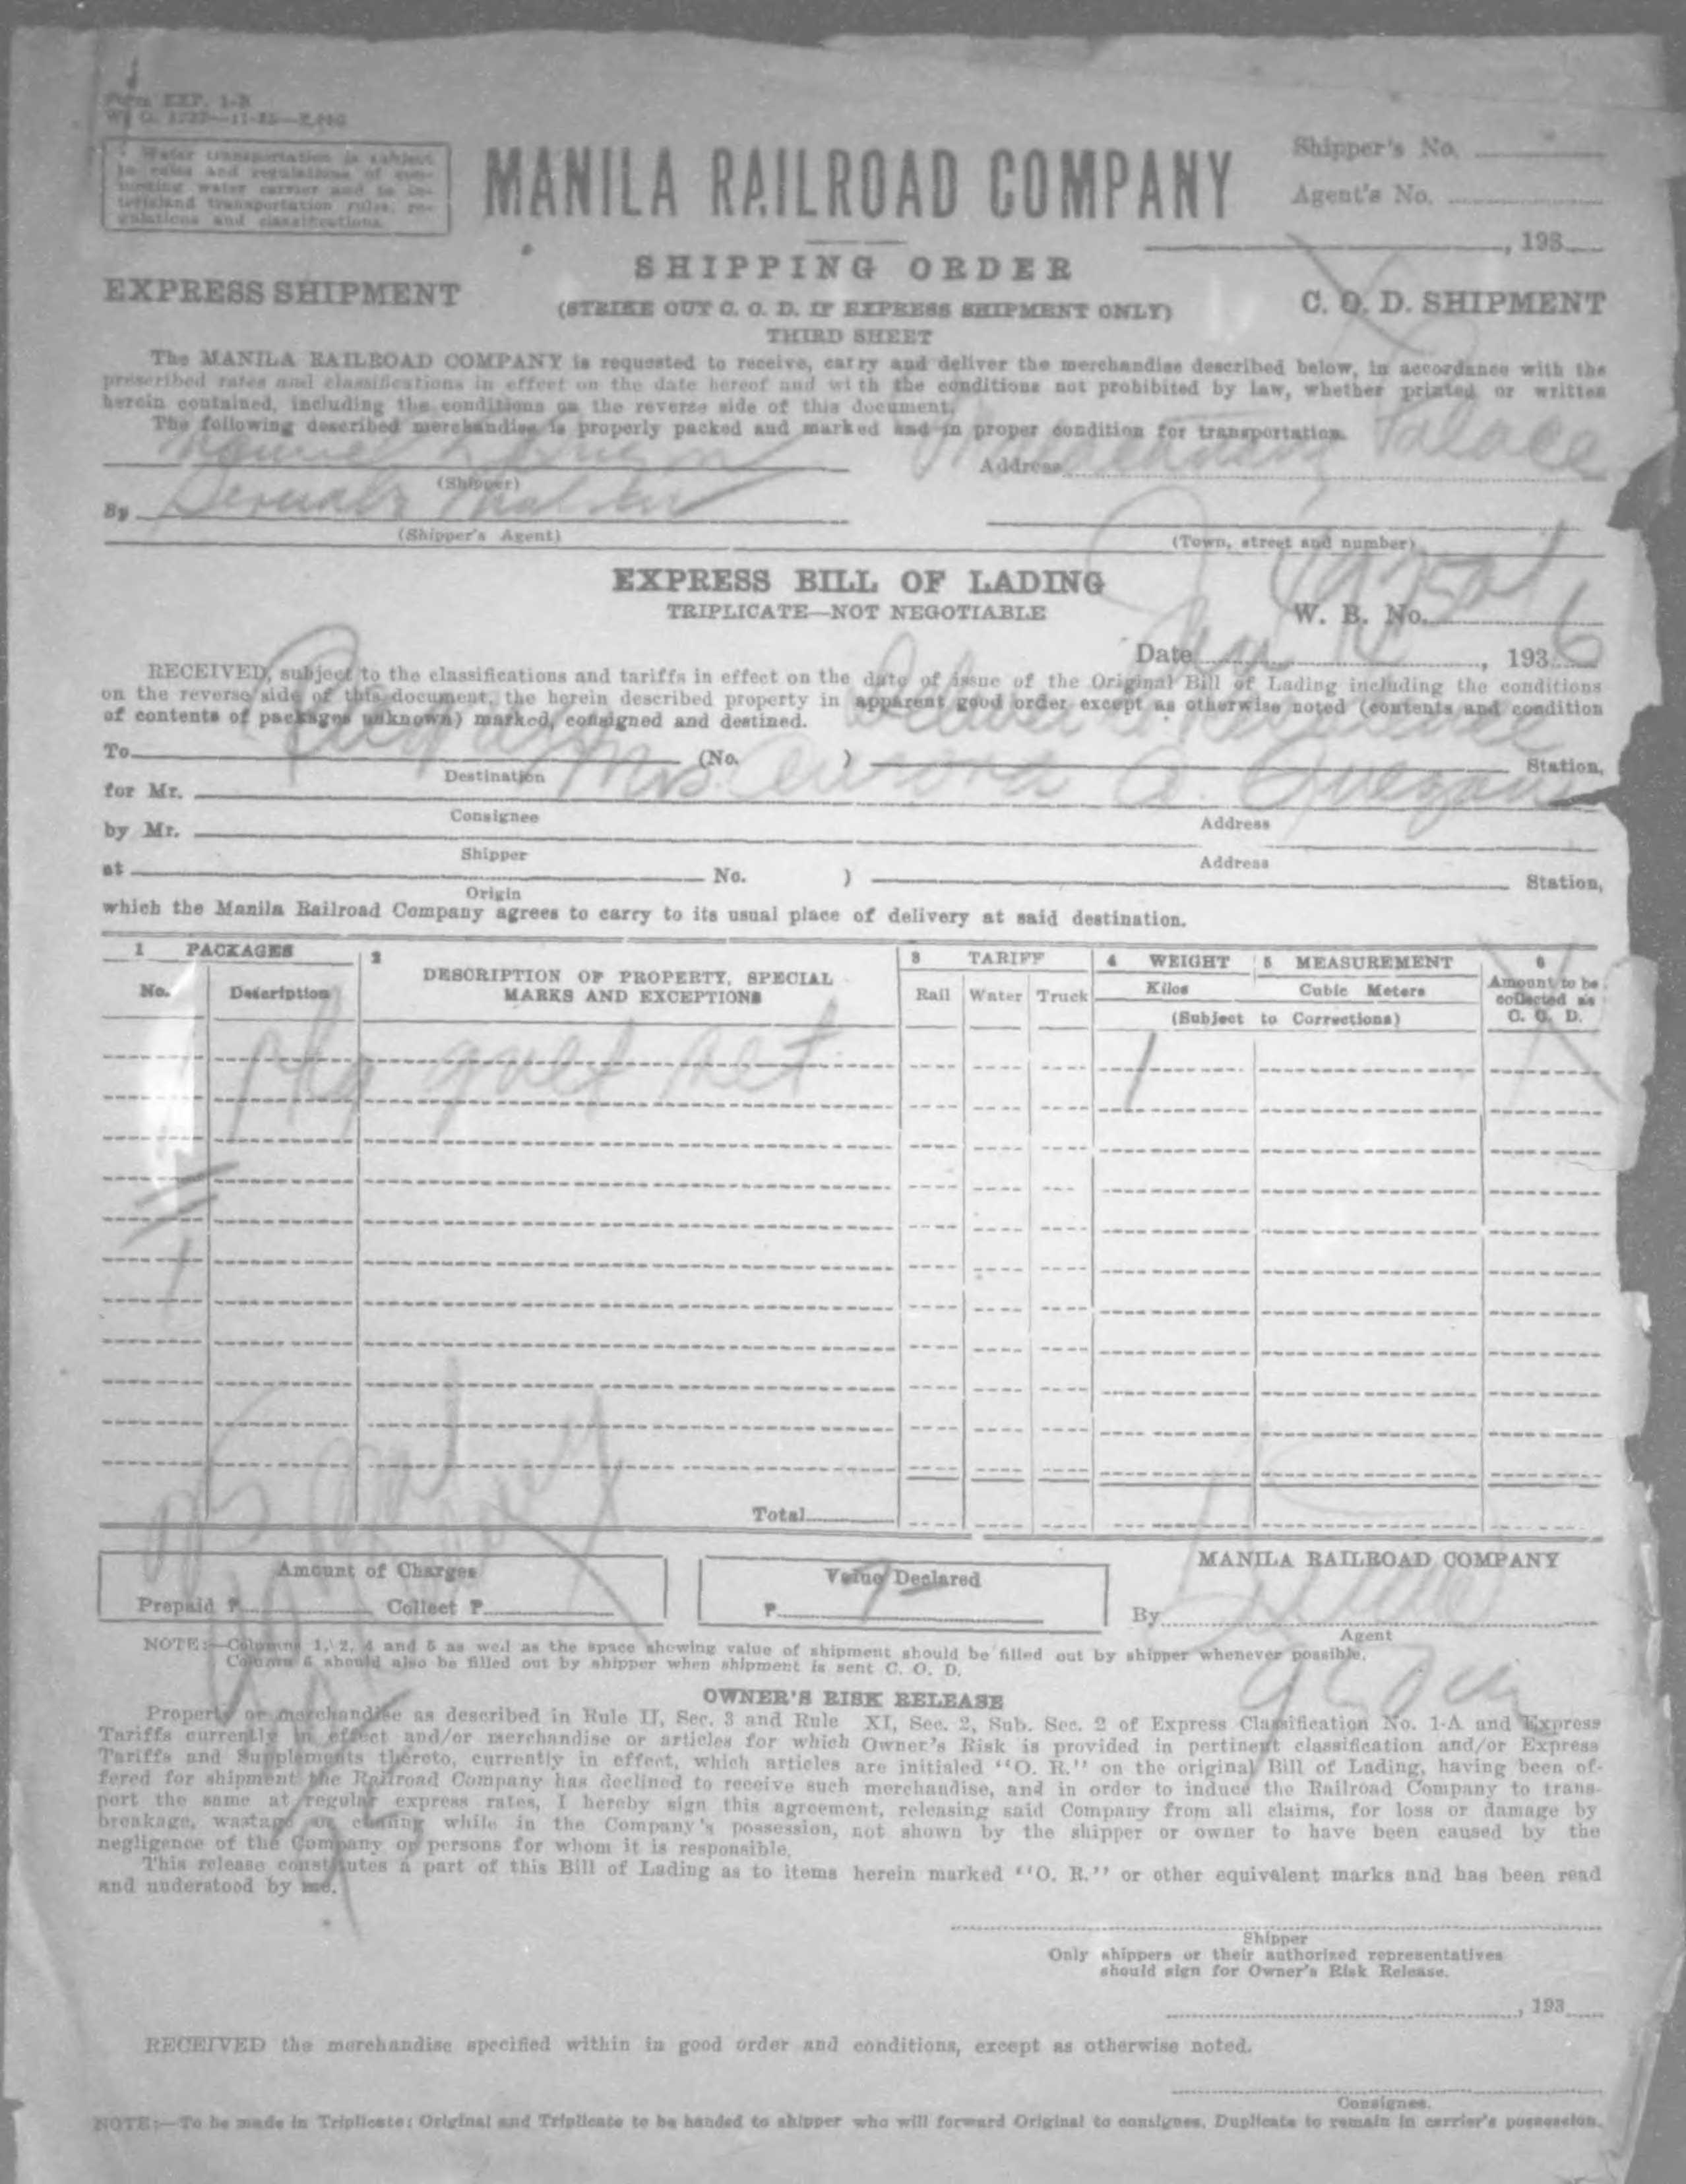 Form EXP. 1-B
Water transportation is subject
to rates and regulations of con-
necting water carrier and to in-
terisland transportation rules, re-
gulations and classifications.
MANILA RAILROAD COMPANY
Shipper's No.
Agent's No.
, 193
SHIPPING ORDER
EXPRESS SHIPMENT
(STRIKE OUT C. O. D. IF EXPRESS SHIPMENT ONLY)
C. O. D. SHIPMENT
THIRD SHEET
The MANILA RAILROAD COMPANY is requested to receive, carry and deliver the merchandise described below, in accordance with the
prescribed rates and classifications in effect on the date hereof and with the conditions not prohibited by law, whether printed or written
herein contained, including the conditions on the reverse side of this document.
The following described merchandise is properly packed and marked and in proper condition for transportation.
Manuel L Quezon
Address Malacañang Palace
(Shipper)
By
(Shipper's Agent)
(Town, street and number)
EXPRESS BILL OF LADING
TRIPLICATE—NOT NEGOTIABLE
W. B. No.
Date , 1936
RECEIVED, subject to the classifications and tariffs in effect on the date of issue of the Original Bill of Lading including the conditions
on the reverse side of this document, the herein described property in apparent good order except as otherwise noted (contents and condition
of contents of packages unknown) marked, consigned and destined.
Deliver to Residence
To (No. ) Station,
Destination
for Mr. Mrs. Aurora A. Quezon
Consignee Address
by Mr.
Shipper Address
at No. ) Station,
Origin
which the Manila Railroad Company agrees to carry to its usual place of delivery at said destination.
1 PACKAGES 2 3 TARIFF 4 WEIGHT 5 MEASUREMENT 6
No. Description DESCRIPTION OF PROPERTY, SPECIAL MARKS AND EXCEPTIONS Rail Water Truck Kilos Cubic Meters Amount to be collected as C. O. D.
(Subject to Corrections)
pkg set 1
Total
Amount of Charges
Prepaid ₱ Collect ₱
Value Declared
₱
MANILA RAILROAD COMPANY
By
Agent
NOTE:—Columns 1, 2, 4 and 5 as well as the space showing value of shipment should be filled out by shipper whenever possible.
Column 6 should also be filled out by shipper when shipment is sent C. O. D.
OWNER'S RISK RELEASE
Property or merchandise as described in Rule II, Sec. 3 and Rule XI, Sec. 2, Sub. Sec. 2 of Express Classification No. 1-A and Express
Tariffs currently in effect and/or merchandise or articles for which Owner's Risk is provided in pertinent classification and/or Express
Tariffs and Supplements thereto, currently in effect, which articles are initialed "O. R." on the original Bill of Lading, having been of-
fered for shipment the Railroad Company has declined to receive such merchandise, and in order to induce the Railroad Company to trans-
port the same at regular express rates, I hereby sign this agreement, releasing said Company from all claims, for loss or damage by
breakage, wastage or chafing while in the Company's possession, not shown by the shipper or owner to have been caused by the
negligence of the Company or persons for whom it is responsible.
This release constitutes a part of this Bill of Lading as to items herein marked "O. R." or other equivalent marks and has been read
and understood by me.
Shipper
Only shippers or their authorized representatives
should sign for Owner's Risk Release.
, 193
RECEIVED the merchandise specified within in good order and conditions, except as otherwise noted.
Consignee.
NOTE:—To be made in Triplicate: Original and Triplicate to be handed to shipper who will forward Original to consignee, Duplicate to remain in carrier's possession.